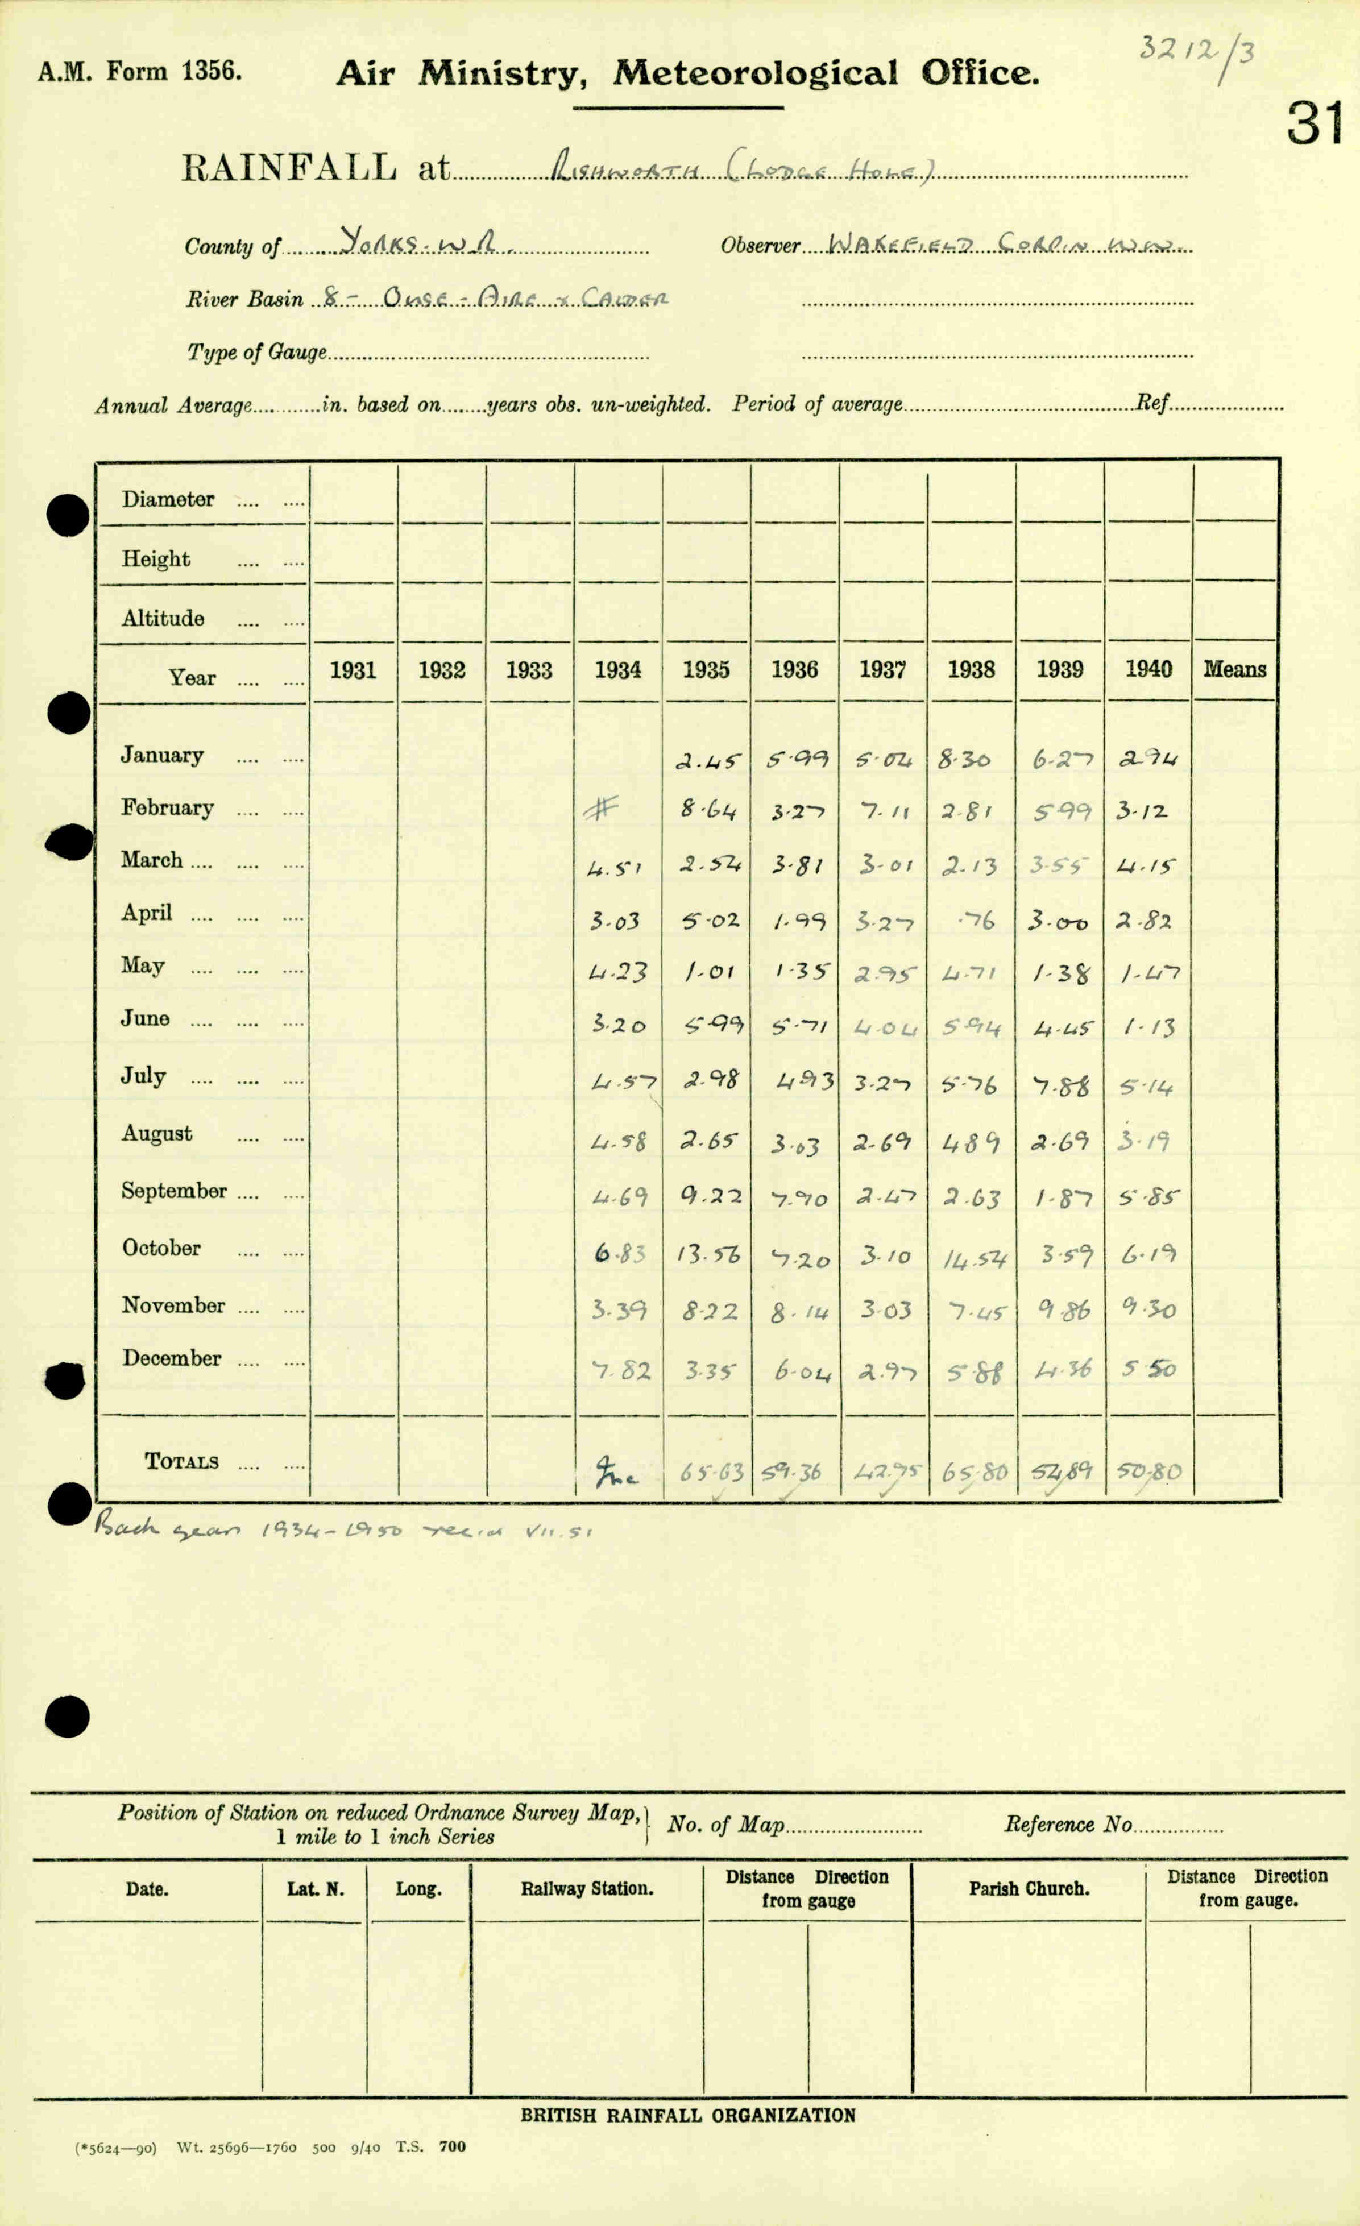 3212/3
A.M. Form 1356. Air Ministry, Meteorological Office.
31
RAINFALL at RISHWORTH (LODGE HOLE)
County of YORKS. W R. Observer WAKEFIELD CORP'N W.W.
River Basin 8 - OUSE - AIRE & CALDER
Type of Gauge
Annual Average in. based on years obs. un-weighted. Period of average Ref
Diameter .... ....
Height .... ....
Altitude .... ....
Year .... .... 1931 1932 1933 1934 1935 1936 1937 1938 1939 1940 Means
January .... .... 2.45 5.99 5.04 8.30 6.27 2.94
February .... .... # 8.64 3.27 7.11 2.81 5.99 3.12
March .... .... .... 4.51 2.54 3.81 3.01 2.13 3.55 4.15
April .... .... .... 3.03 5.02 1.99 3.27 .76 3.00 2.82
May .... .... .... 4.23 1.01 1.35 2.95 4.71 1.38 1.47
June .... .... .... 3.20 5.99 5.71 4.04 5.94 4.45 1.13
July .... .... .... 4.57 2.98 4.93 3.27 5.76 7.88 5.14
August .... .... 4.58 2.65 3.03 2.69 4.89 2.69 3.19
September .... .... 4.69 9.22 7.90 2.47 2.63 1.87 5.85
October .... .... 6.83 13.56 7.20 3.10 14.54 3.59 6.19
November .... .... 3.39 8.22 8.14 3.03 7.45 9.86 9.30
December .... .... 7.82 3.35 6.04 2.97 5.88 4.36 5.50
TOTALS .... .... Inc 65.63 59.36 42.95 65.80 54.89 50.80
Back years 1934-1950 rec'd VII.51
Position of Station on reduced Ordnance Survey Map, 1 mile to 1 inch Series No. of Map Reference No.
Date. Lat. N. Long. Railway Station. Distance Direction from gauge Parish Church. Distance Direction from gauge.
BRITISH RAINFALL ORGANIZATION
(*5624—90) Wt. 25696—1760 500 9/40 T.S. 700